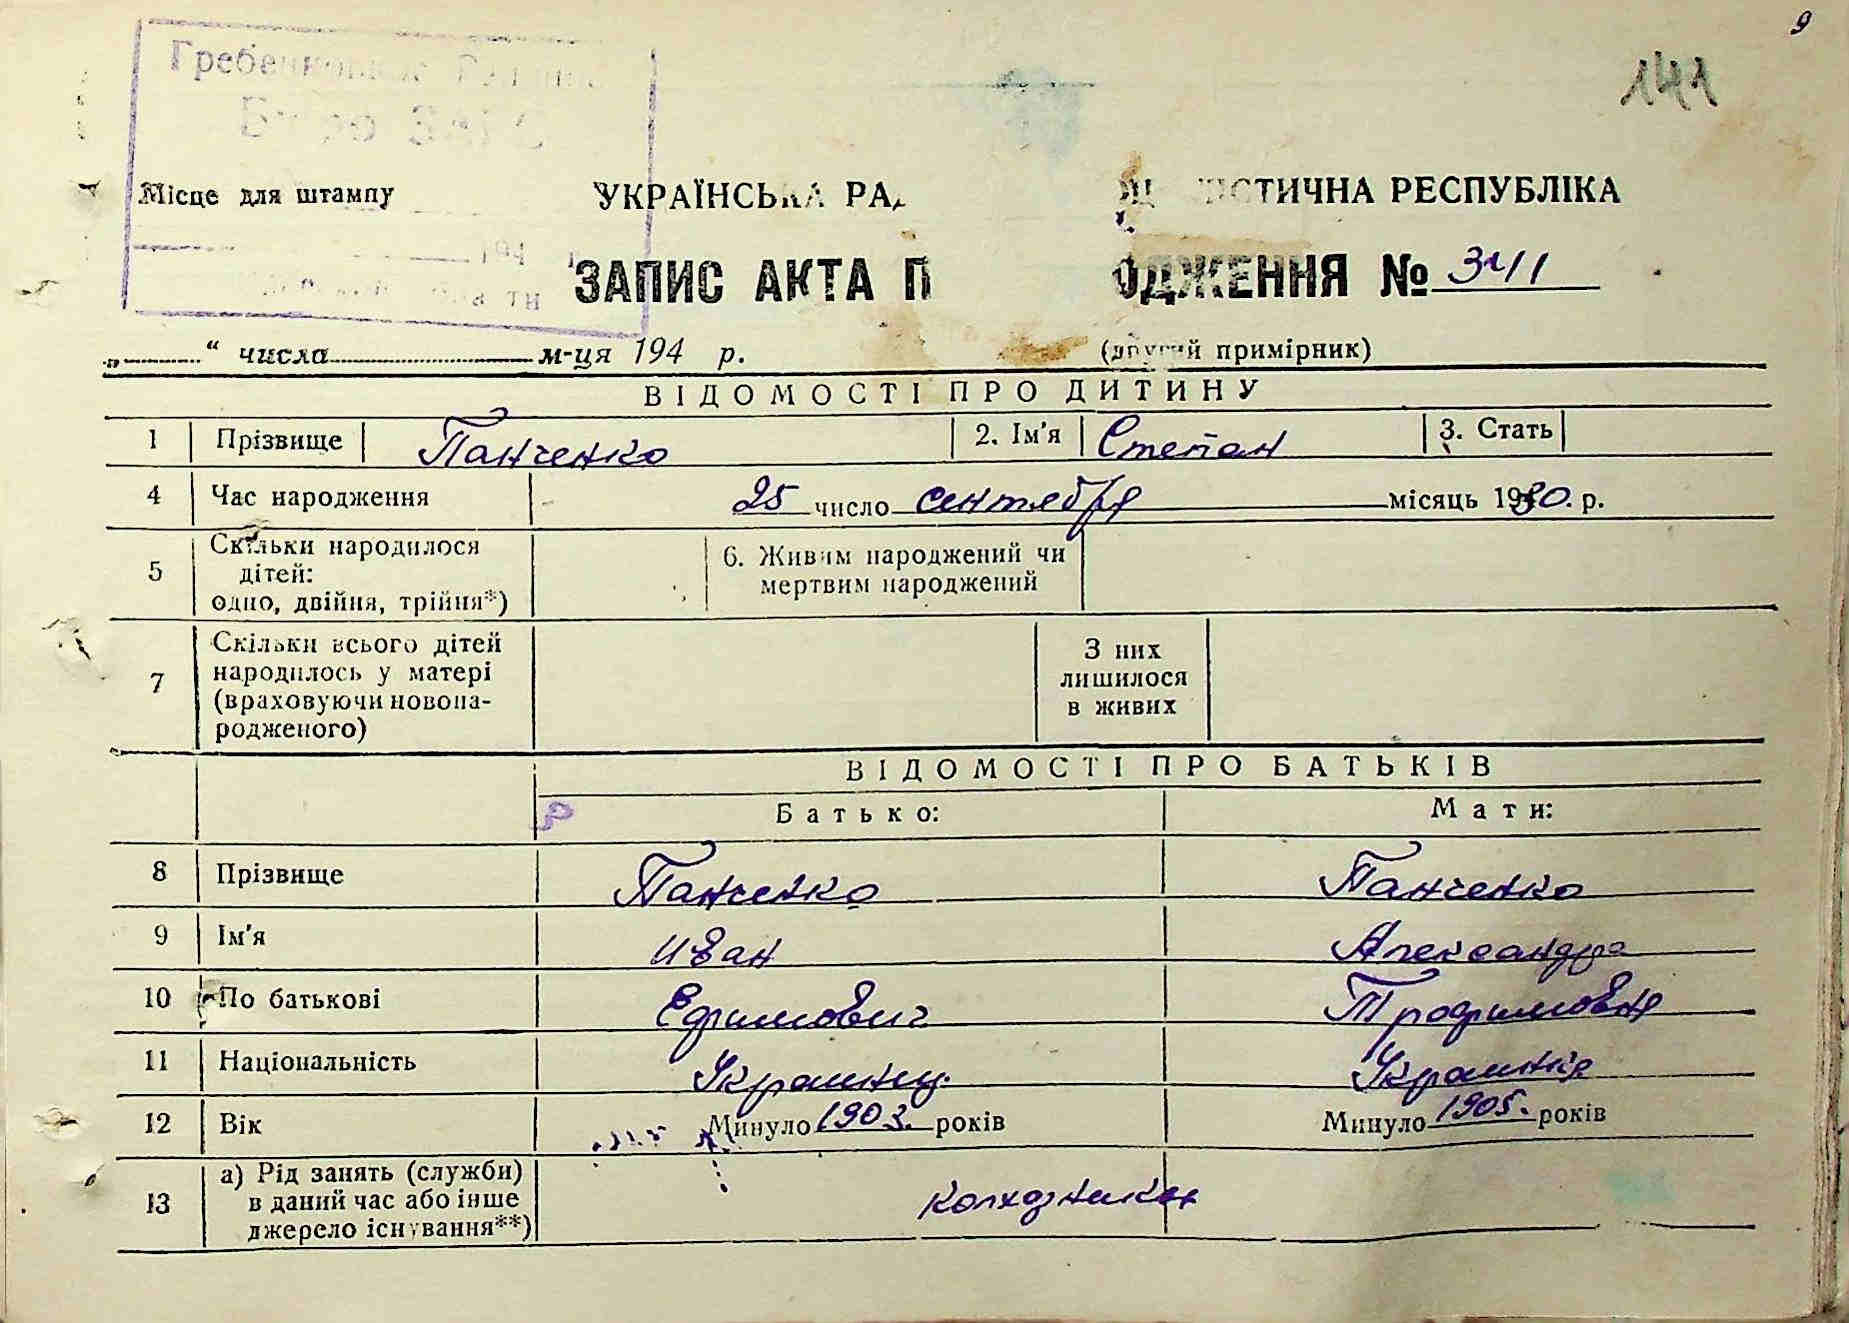 9
141
Бюро ЗАГС
Місце для штампу
УКРАЇНСЬКА РАД ОЦ ІСТИЧНА РЕСПУБЛІКА
ЗАПИС АКТА П ОДЖЕННЯ № 3411
„ “ числа м-ця 194 р. (другий примірник)
ВІДОМОСТІ ПРО ДИТИНУ
1 Прізвище Панченко 2. Ім'я Степан 3. Стать
4 Час народження 25 число сентября місяць 1930. р.
5 Скільки народилося дітей: одно, двійня, трійня*) 6. Живим народжений чи мертвим народжений
7 Скільки всього дітей народилось у матері (враховуючи новона-родженого) З них лишилося в живих
ВІДОМОСТІ ПРО БАТЬКІВ
Батько: Мати:
8 Прізвище Панченко Панченко
9 Ім'я Иван Александра
10 По батькові Ефимович Трофимовня
11 Національність Украинец. Украинка
12 Вік Минуло 1903. років Минуло 1905. років
13 а) Рід занять (служби) в даний час або інше джерело існування**) колхозники